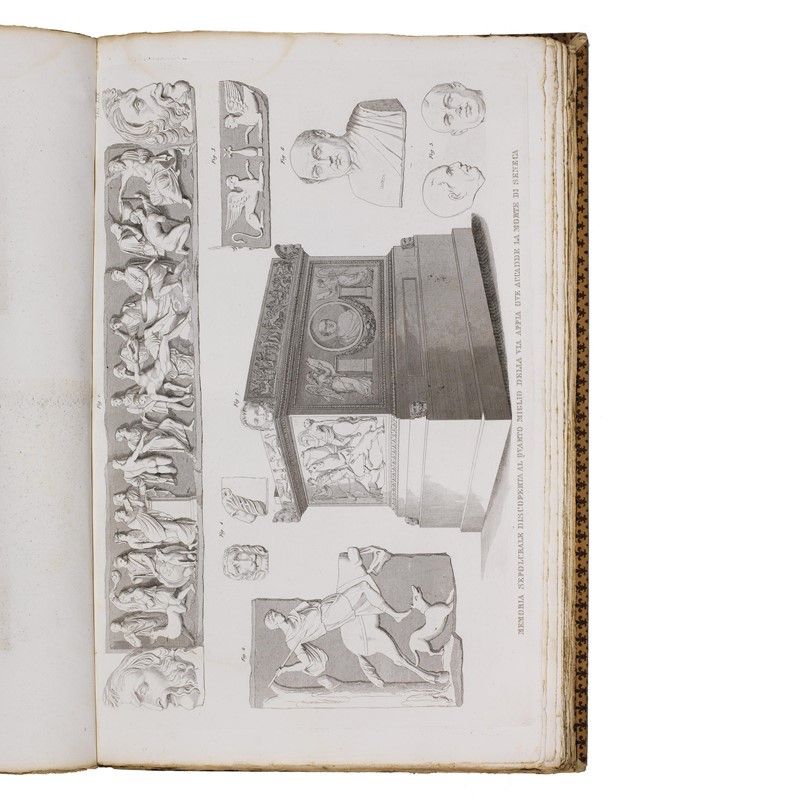 Fig 1.
Fig 3.
Fig 2.
Fig 5.
Fig 7.
Fig 4.
Fig 6.
MEMORIA SEPOLCRALE DISCOPERTA AL QVARTO MIGLIO DELLA VIA APPIA OVE ACCADDE LA MORTE DI SENECA